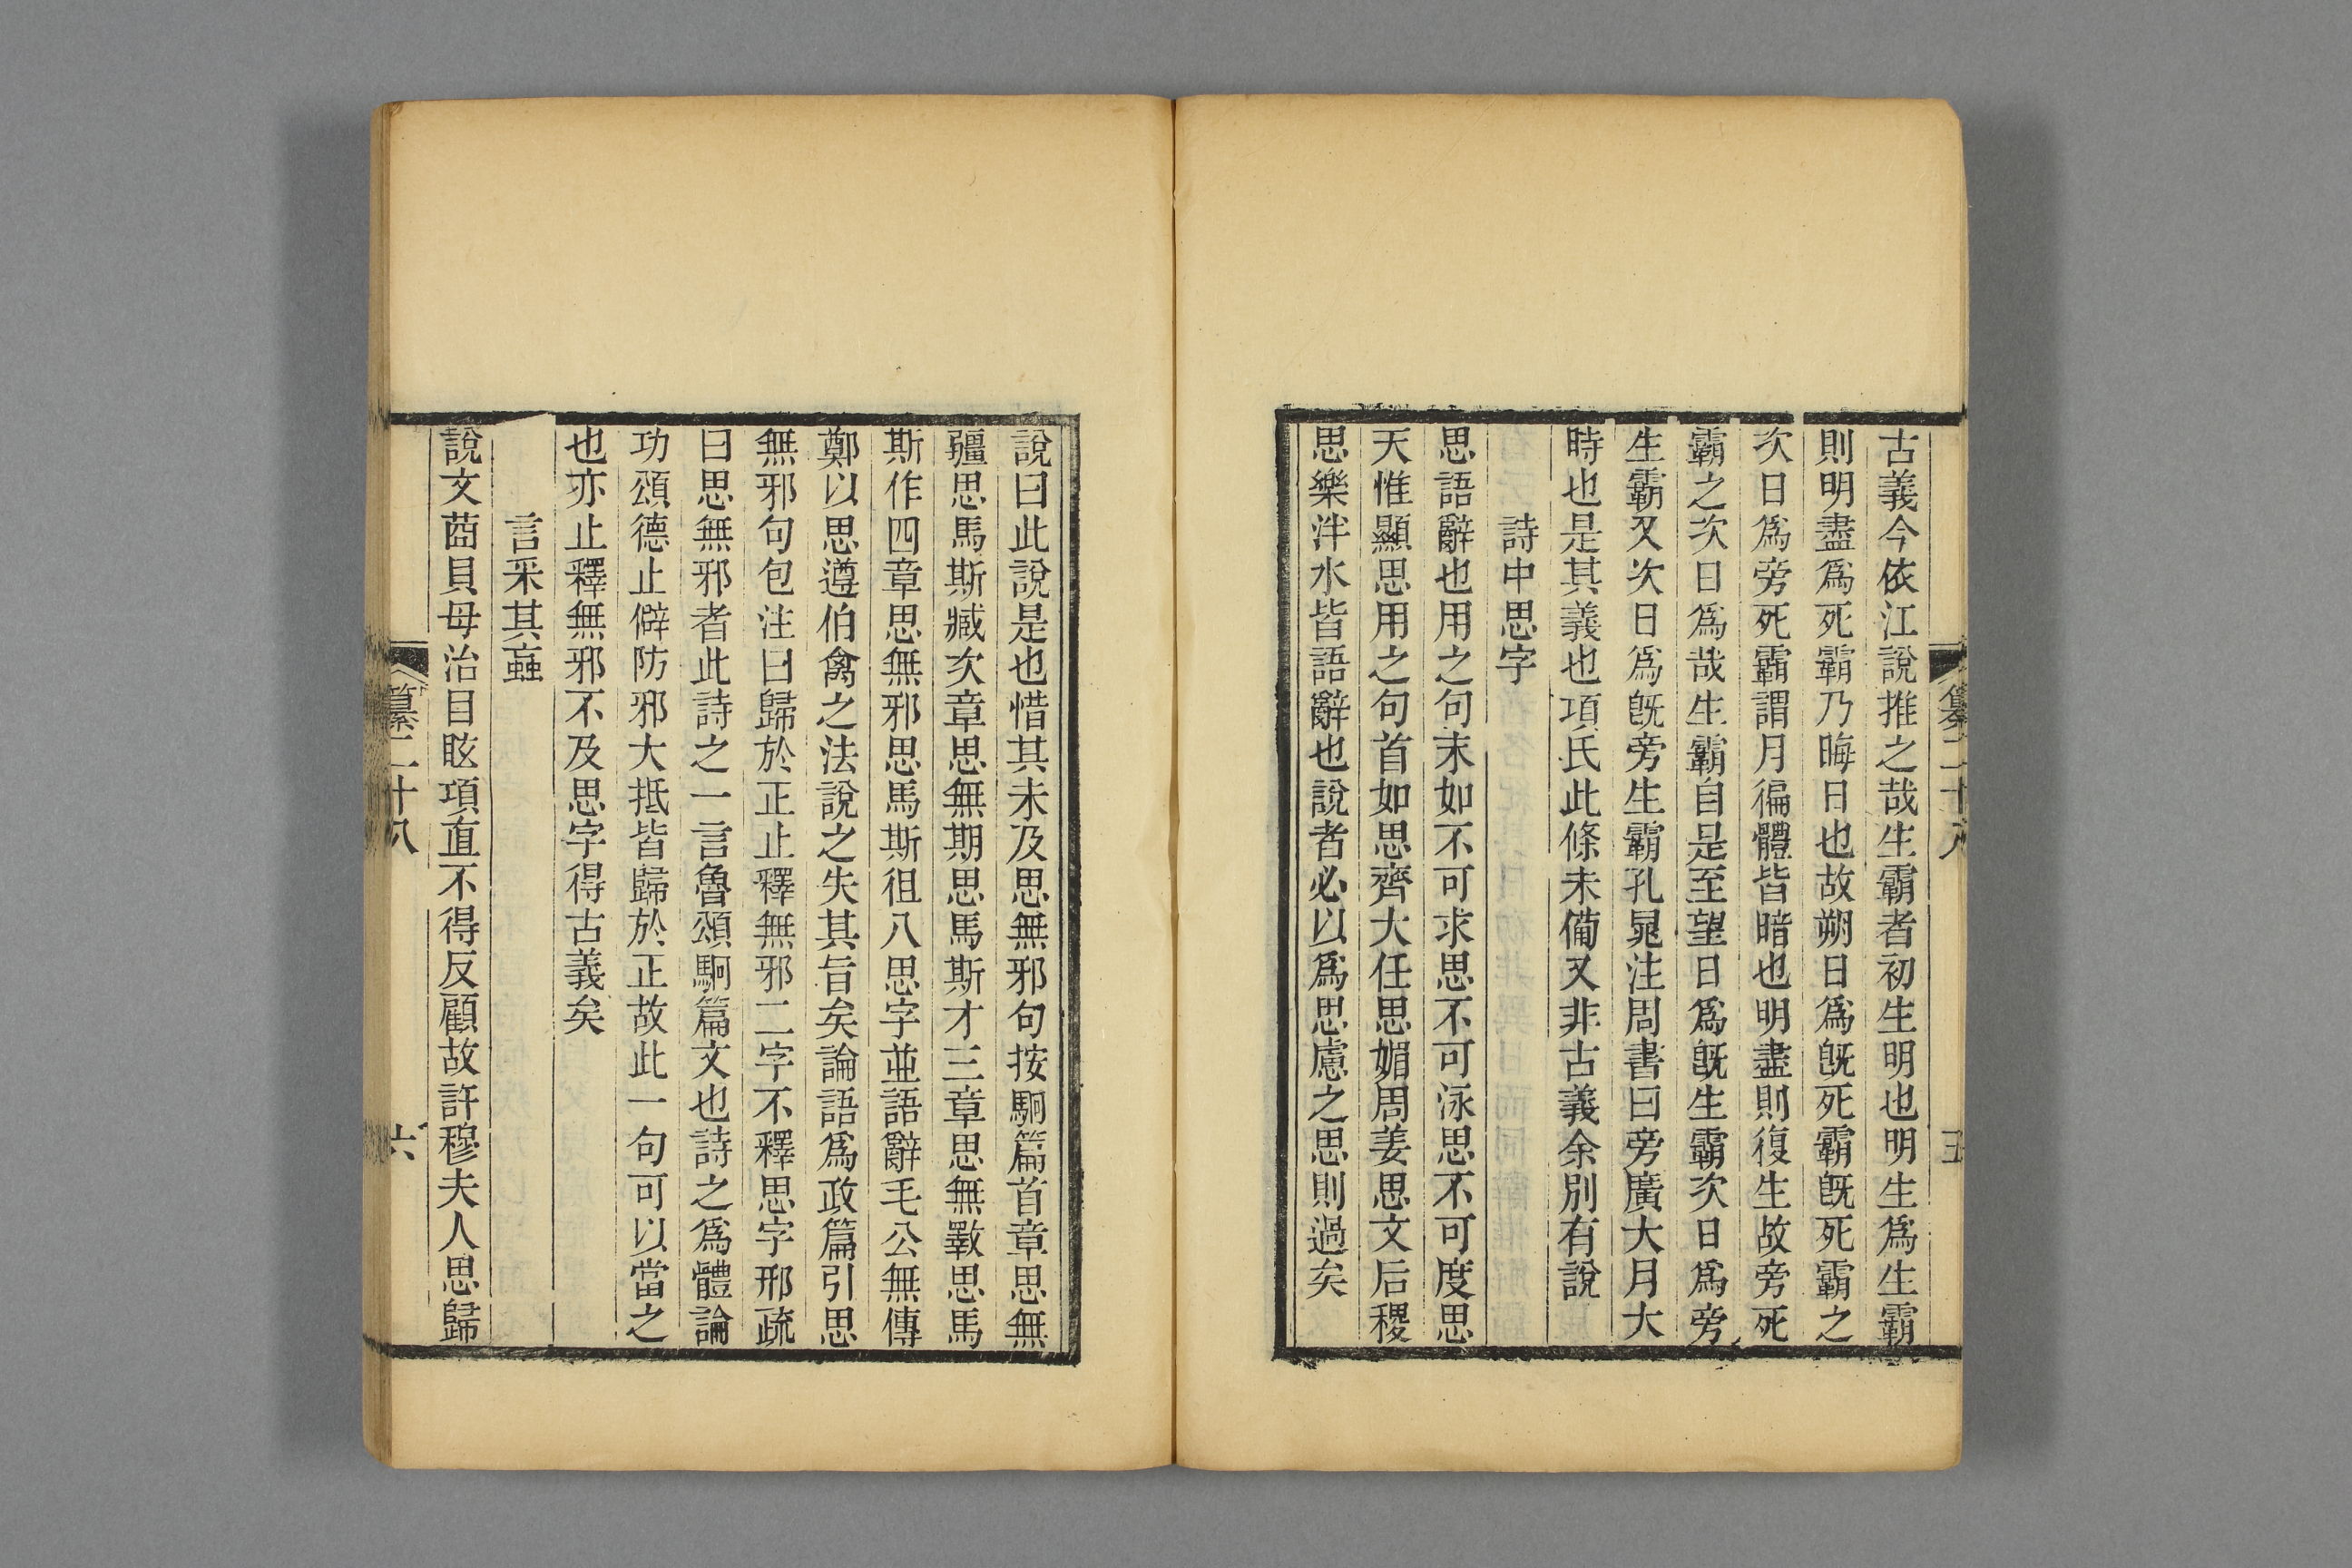 古義今依江說推之哉生霸者初生明也明生爲生霸
則明盡爲死霸乃晦日也故朔日爲旣死霸旣死霸之
次日爲旁死霸謂月徧體皆暗也明盡則復生故旁死
霸之次日爲哉生霸自是至望日爲旣生霸次日爲旁
生霸又次日爲旣旁生霸孔晁注周書曰旁廣大月大
時也是其義也項氏此條未備又非古義余別有說
詩中思字
思語辭也用之句末如不可求思不可泳思不可度思
天惟顯思用之句首如思齊大任思媚周姜思文后稷
思樂泮水皆語辭也說者必以爲思慮之思則過矣
纂二十八
五
說曰此說是也惜其未及思無邪句按駉篇首章思無
疆思馬斯臧次章思無期思馬斯才三章思無斁思馬
斯作四章思無邪思馬斯徂八思字並語辭毛公無傳
鄭以思遵伯禽之法說之失其旨矣論語爲政篇引思
無邪句包注曰歸於正止釋無邪二字不釋思字邢疏
曰思無邪者此詩之一言魯頌駉篇文也詩之爲體論
功頌德止僻防邪大抵皆歸於正故此一句可以當之
也亦止釋無邪不及思字得古義矣
言采其蝱
說文莔貝母治目眩項直不得反顧故許穆夫人思歸
纂二十八
六